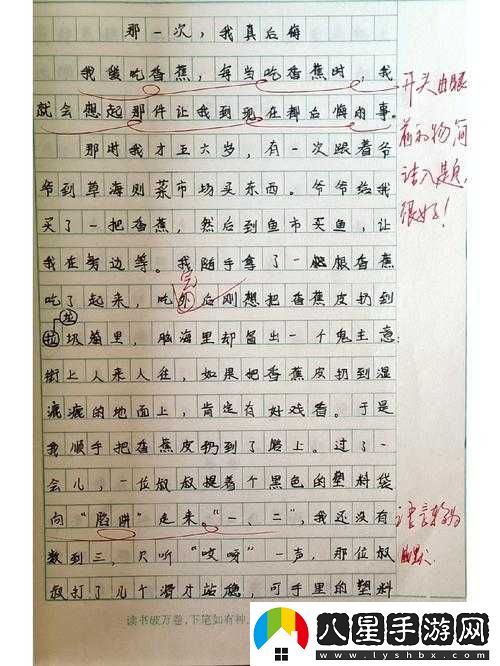 那一次，我真后悔
我爱吃香蕉，每当吃香蕉时，我
就会想起那件让我到现在都后悔的事。
那时我才五六岁，有一次跟着爷
爷到草海则菜市场买东西。爷爷给我
买了一把香蕉，然后到鱼市买鱼，让
我在旁边等。我随手拿了一根香蕉
吃了起来，吃完后刚想把香蕉皮扔到
垃
垃圾箱里，脑海里却冒出一个鬼主意：
街上人来人往，如果把香蕉皮扔到湿
漉漉的地面上，肯定有好戏看。于是
我顺手把香蕉皮扔到了路上。过了一
会儿，一位叔叔提着个黑色的塑料袋
向“陷阱”走来。“一、二”，我还没有
数到三，只听“哎呀”一声，那位叔
叔打了几个滑才站稳，可手里的塑料
开头由眼
前的物简
洁入题，
很好！
语言较为
幽默
读书破万卷，下笔如有神。
八星手游网
www.lyshbx.com